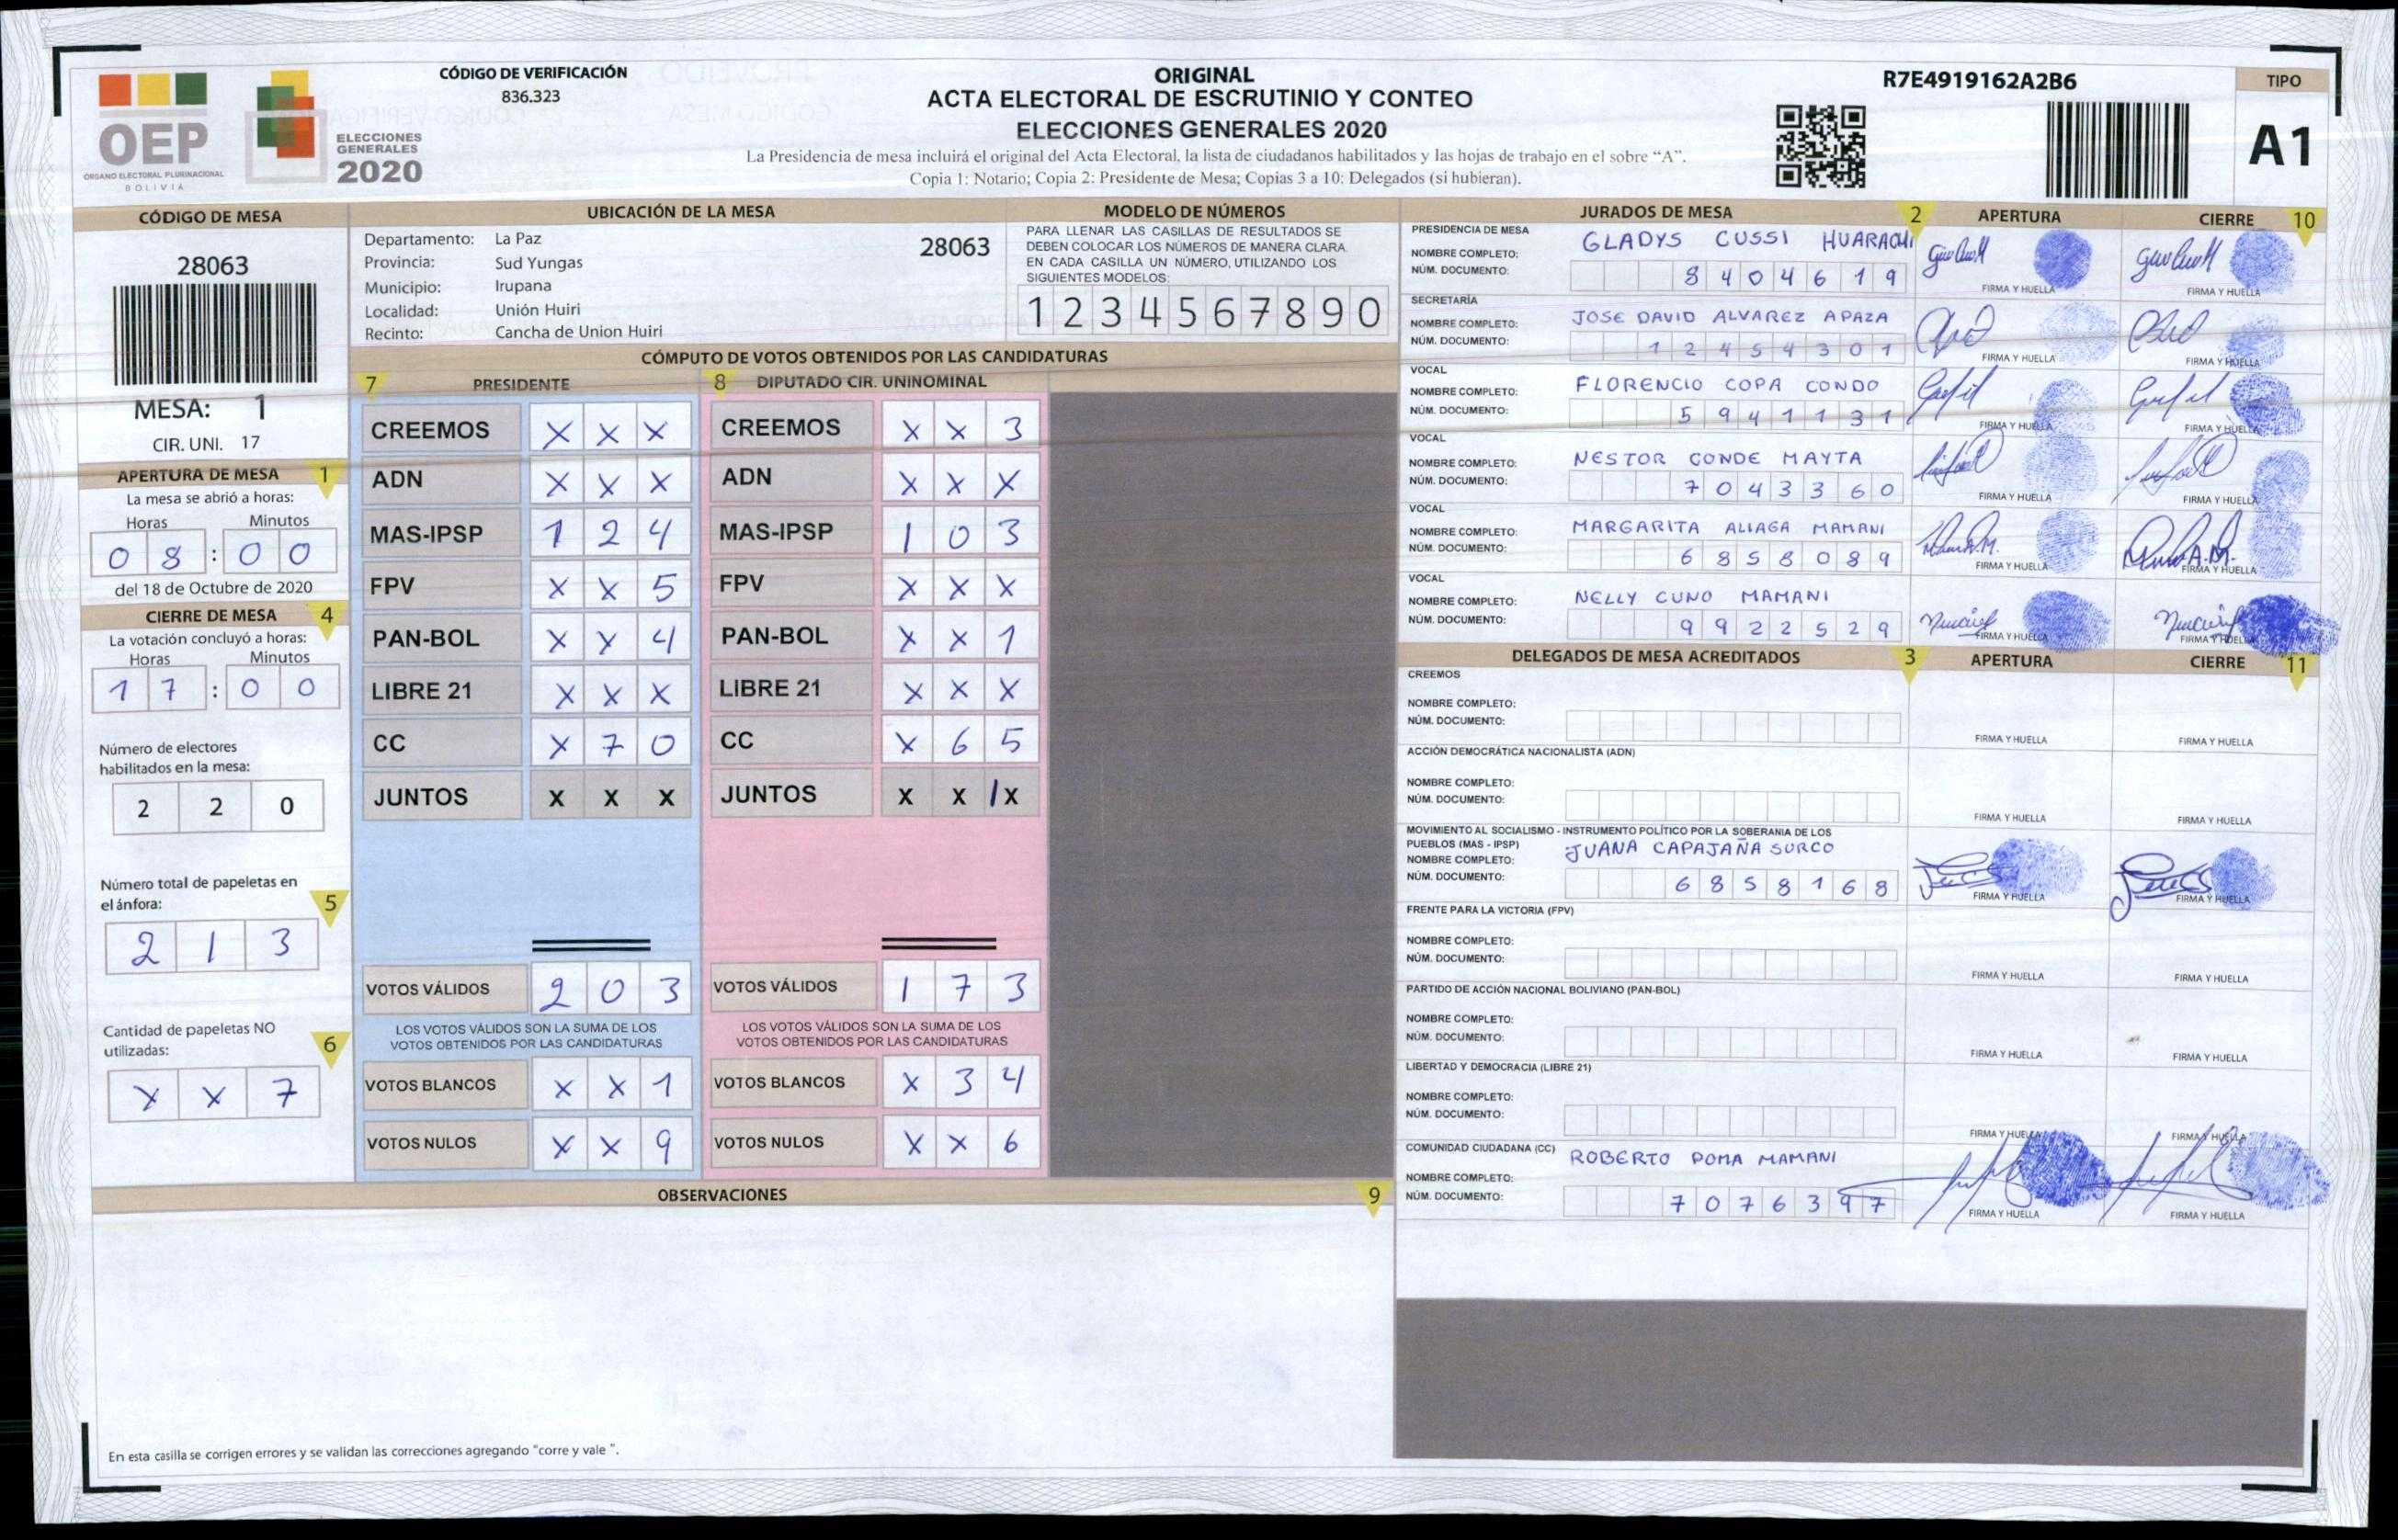 OEP
ÓRGANO ELECTORAL PLURINACIONAL
BOLIVIA
ELECCIONES
GENERALES
2020
CÓDIGO DE VERIFICACIÓN
836.323
ORIGINAL
ACTA ELECTORAL DE ESCRUTINIO Y CONTEO
ELECCIONES GENERALES 2020
La Presidencia de mesa incluirá el original del Acta Electoral, la lista de ciudadanos habilitados y las hojas de trabajo en el sobre “A”.
Copia 1: Notario; Copia 2: Presidente de Mesa; Copias 3 a 10: Delegados (si hubieran).
R7E4919162A2B6
TIPO
A1
CÓDIGO DE MESA
28063
MESA: 1
CIR. UNI. 17
APERTURA DE MESA 1
La mesa se abrió a horas:
Horas Minutos
0 8 : 0 0
del 18 de Octubre de 2020
CIERRE DE MESA 4
La votación concluyó a horas:
Horas Minutos
1 7 : 0 0
Número de electores
habilitados en la mesa:
2 2 0
Número total de papeletas en
el ánfora: 5
2 1 3
Cantidad de papeletas NO
utilizadas: 6
X X 7
UBICACIÓN DE LA MESA
Departamento: La Paz 28063
Provincia: Sud Yungas
Municipio: Irupana
Localidad: Unión Huiri
Recinto: Cancha de Union Huiri
MODELO DE NÚMEROS
PARA LLENAR LAS CASILLAS DE RESULTADOS SE
DEBEN COLOCAR LOS NÚMEROS DE MANERA CLARA
EN CADA CASILLA UN NÚMERO, UTILIZANDO LOS
SIGUIENTES MODELOS:
1 2 3 4 5 6 7 8 9 0
CÓMPUTO DE VOTOS OBTENIDOS POR LAS CANDIDATURAS
7 PRESIDENTE
CREEMOS X X X
ADN X X X
MAS-IPSP 1 2 4
FPV X X 5
PAN-BOL X X 4
LIBRE 21 X X X
CC X 7 0
JUNTOS X X X
VOTOS VÁLIDOS 2 0 3
LOS VOTOS VÁLIDOS SON LA SUMA DE LOS
VOTOS OBTENIDOS POR LAS CANDIDATURAS
VOTOS BLANCOS X X 1
VOTOS NULOS X X 9
8 DIPUTADO CIR. UNINOMINAL
CREEMOS X X 3
ADN X X X
MAS-IPSP 1 0 3
FPV X X X
PAN-BOL X X 1
LIBRE 21 X X X
CC X 6 5
JUNTOS X X / X
VOTOS VÁLIDOS 1 7 3
LOS VOTOS VÁLIDOS SON LA SUMA DE LOS
VOTOS OBTENIDOS POR LAS CANDIDATURAS
VOTOS BLANCOS X 3 4
VOTOS NULOS X X 6
OBSERVACIONES 9
En esta casilla se corrigen errores y se validan las correcciones agregando "corre y vale ".
JURADOS DE MESA 2 APERTURA CIERRE 10
PRESIDENCIA DE MESA
NOMBRE COMPLETO: GLADYS CUSSI HUARACHI
NÚM. DOCUMENTO: 8 4 0 4 6 1 9
FIRMA Y HUELLA FIRMA Y HUELLA
SECRETARÍA
NOMBRE COMPLETO: JOSE DAVID ALVAREZ APAZA
NÚM. DOCUMENTO: 1 2 4 5 4 3 0 1
FIRMA Y HUELLA FIRMA Y HUELLA
VOCAL
NOMBRE COMPLETO: FLORENCIO COPA CONDO
NÚM. DOCUMENTO: 5 9 4 1 1 3 1
FIRMA Y HUELLA FIRMA Y HUELLA
VOCAL
NOMBRE COMPLETO: NESTOR CONDE MAYTA
NÚM. DOCUMENTO: 7 0 4 3 3 6 0
FIRMA Y HUELLA FIRMA Y HUELLA
VOCAL
NOMBRE COMPLETO: MARGARITA ALIAGA MAMANI
NÚM. DOCUMENTO: 6 8 5 8 0 8 9
FIRMA Y HUELLA FIRMA Y HUELLA
VOCAL
NOMBRE COMPLETO: NELLY CUNO MAMANI
NÚM. DOCUMENTO: 9 9 2 2 5 2 9
FIRMA Y HUELLA FIRMA Y HUELLA
DELEGADOS DE MESA ACREDITADOS 3 APERTURA CIERRE 11
CREEMOS
NOMBRE COMPLETO:
NÚM. DOCUMENTO:
FIRMA Y HUELLA FIRMA Y HUELLA
ACCIÓN DEMOCRÁTICA NACIONALISTA (ADN)
NOMBRE COMPLETO:
NÚM. DOCUMENTO:
FIRMA Y HUELLA FIRMA Y HUELLA
MOVIMIENTO AL SOCIALISMO - INSTRUMENTO POLÍTICO POR LA SOBERANIA DE LOS
PUEBLOS (MAS - IPSP)
NOMBRE COMPLETO: JUANA CAPAJAÑA SURCO
NÚM. DOCUMENTO: 6 8 5 8 1 6 8
FIRMA Y HUELLA FIRMA Y HUELLA
FRENTE PARA LA VICTORIA (FPV)
NOMBRE COMPLETO:
NÚM. DOCUMENTO:
FIRMA Y HUELLA FIRMA Y HUELLA
PARTIDO DE ACCIÓN NACIONAL BOLIVIANO (PAN-BOL)
NOMBRE COMPLETO:
NÚM. DOCUMENTO:
FIRMA Y HUELLA FIRMA Y HUELLA
LIBERTAD Y DEMOCRACIA (LIBRE 21)
NOMBRE COMPLETO:
NÚM. DOCUMENTO:
FIRMA Y HUELLA FIRMA Y HUELLA
COMUNIDAD CIUDADANA (CC)
NOMBRE COMPLETO: ROBERTO POMA MAMANI
NÚM. DOCUMENTO: 7 0 7 6 3 9 7
FIRMA Y HUELLA FIRMA Y HUELLA